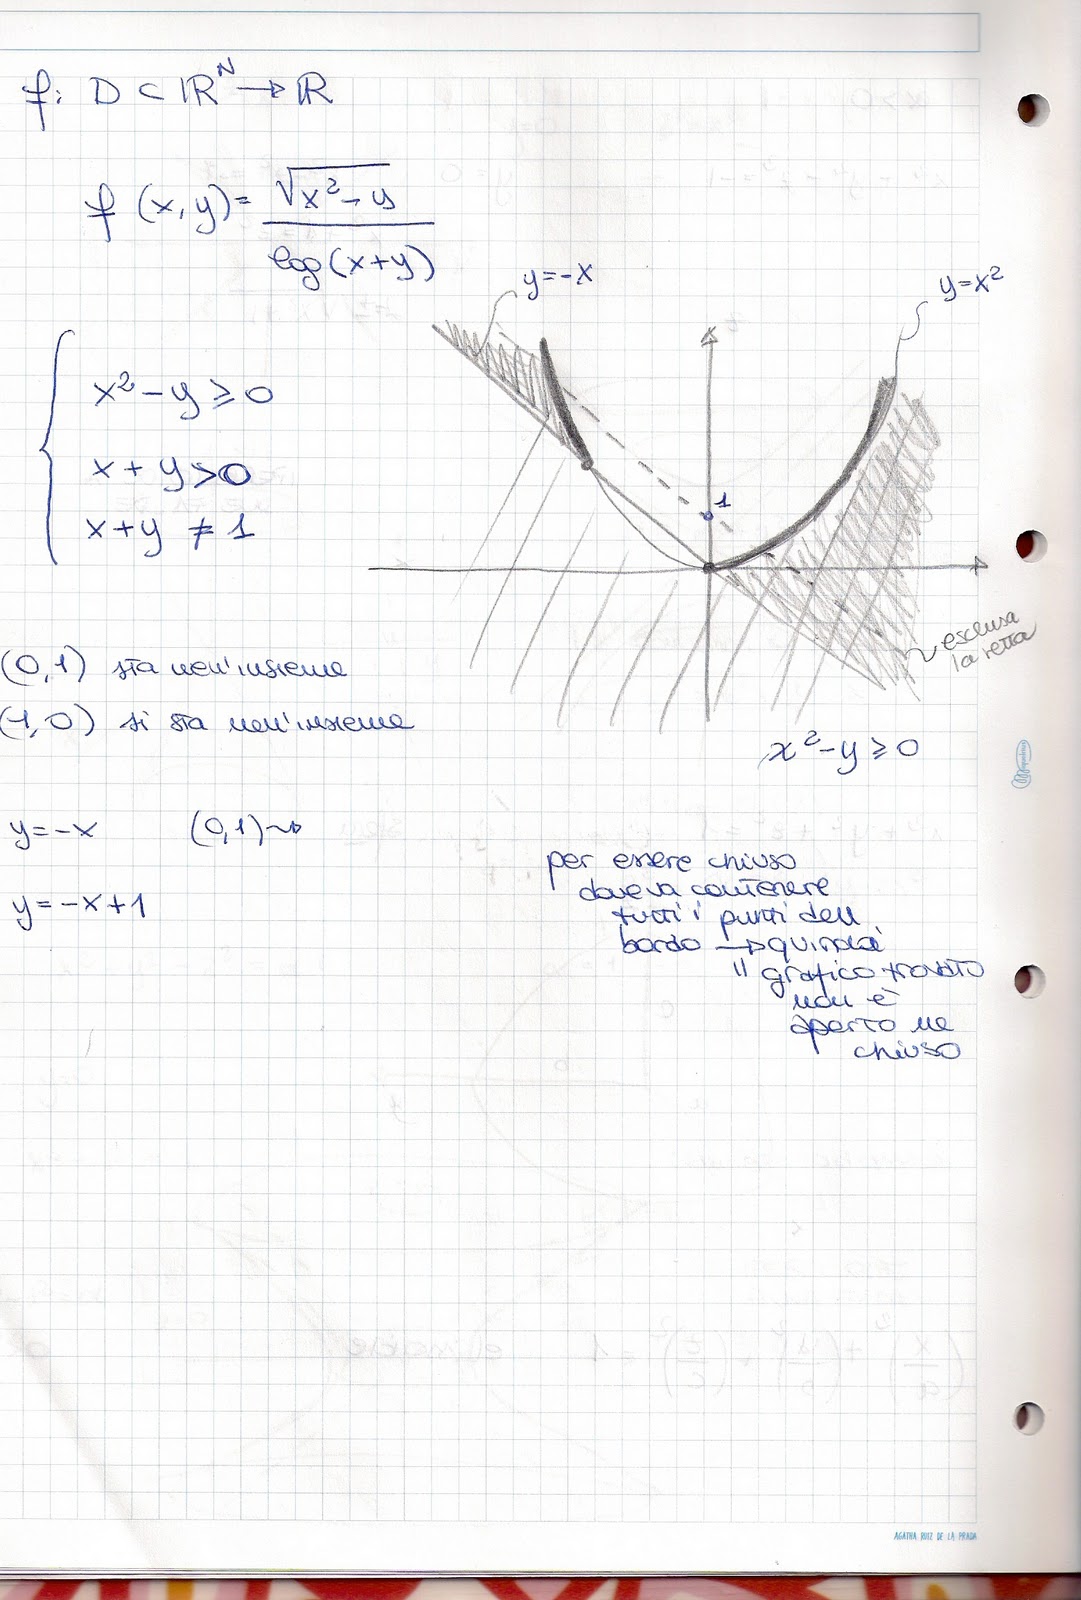 f: D ⊂ ℝᴺ → ℝ
f (x, y) = √(x² - y) / log(x+y)
y = -x
y = x²
x² - y ≥ 0
x + y > 0
x + y ≠ 1
1
esclusa
la retta
(0,1) sta nell'insieme
si sta nell'insieme
x² - y ≥ 0
y = -x (0,1) ⇝
y = -x + 1
per essere chiuso
doveva contenere
tutti i punti del
bordo → quindi
il grafico trovato
non è
aperto ne
chiuso
AGATHA RUIZ DE LA PRADA